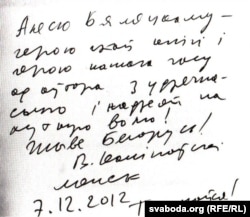 Алесю Бяляцкаму –
герою маёй кнігі і
герою нашага часу
ад аўтара. З удзячна-
сцю і надзеяй на
хуткую волю!
Жыве Беларусь!
В.
Менск
7.12.2012
svaboda.org (RFE/RL)